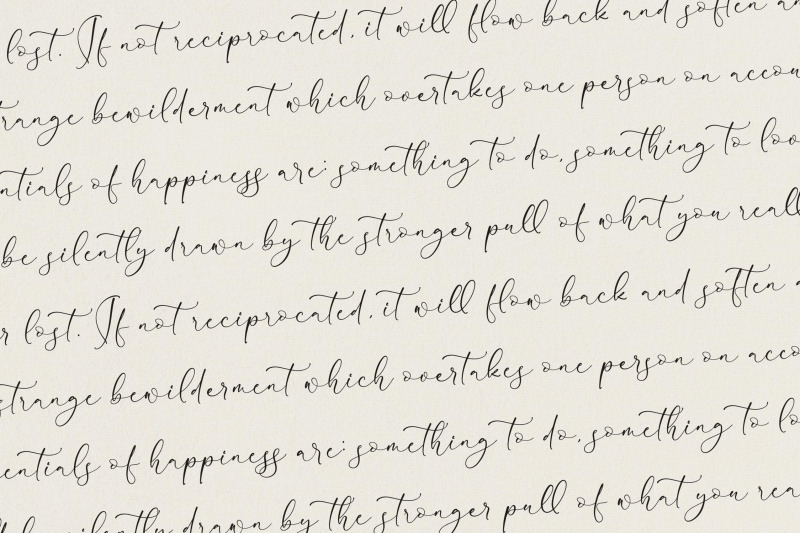 lost. If not reciprocated, it will flow back and soften an
trange bewilderment which overtakes one person on accou
ntials of happiness are: something to do, something to loo
be silently drawn by the stronger pull of what you reall
r lost. If not reciprocated, it will flow back and soften a
strange bewilderment which overtakes one person on acco
entials of happiness are: something to do, something to lo
be silently drawn by the stronger pull of what you rea